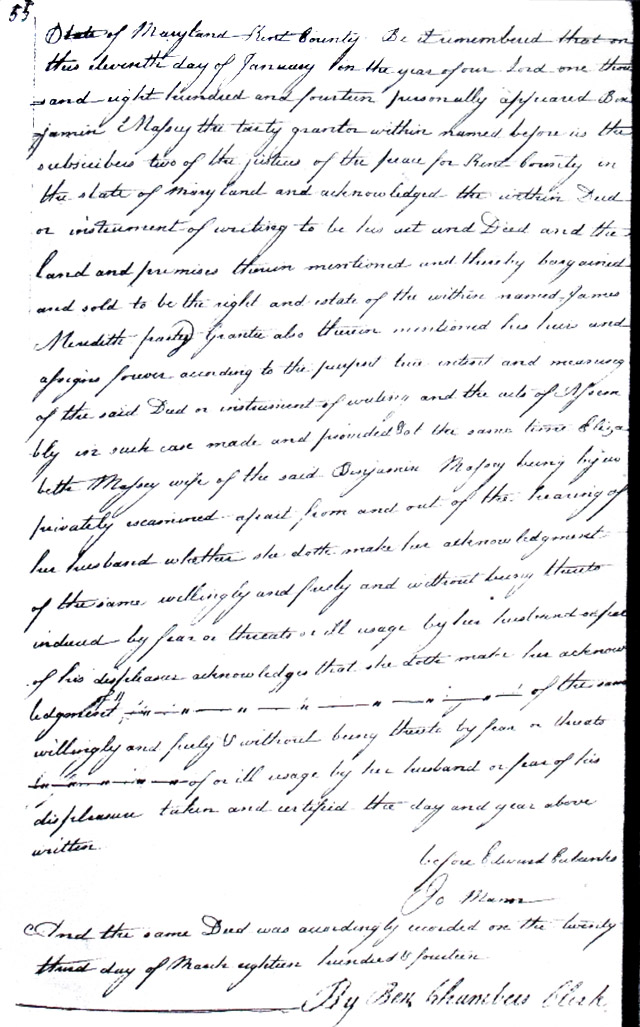 55
State of Maryland Kent County Be it remembered that on
this eleventh day of January in the year of our Lord one thou
sand eight hundred and fourteen personally appeared Ben
jamin Massey the party grantor within named before us the
subscribers two of the justices of the peace for Kent County in
the state of Maryland and acknowledged the within Deed
or instrument of writing to be his act and Deed and the
land and premises therein mentioned and thereby bargained
and sold to be the right and estate of the within named James
Meredith party Grantee also therein mentioned his heirs and
assigns forever according to the purport true intent and meaning
of the said Deed or instrument of writing and the acts of Assem
bly in such case made and provided & at the same time Eliza
beth Massey wife of the said Benjamin Massey being by us
privately examined apart from and out of the hearing of
her husband whether she doth make her acknowledgment
of the same willingly and freely and without being thereto
induced by fear or threats or ill usage by her husband or fear
of his displeasure acknowledges that she doth make her acknow
ledgment of the same
willingly and freely & without being thereto by fear or threats
of or ill usage by her husband or fear of his
displeasure taken and certified the day and year above
written
before Edward Eubanks
Jo Mann
And the same Deed was accordingly recorded on the twenty
third day of March eighteen hundred & fourteen
By Ben Chambers Clerk